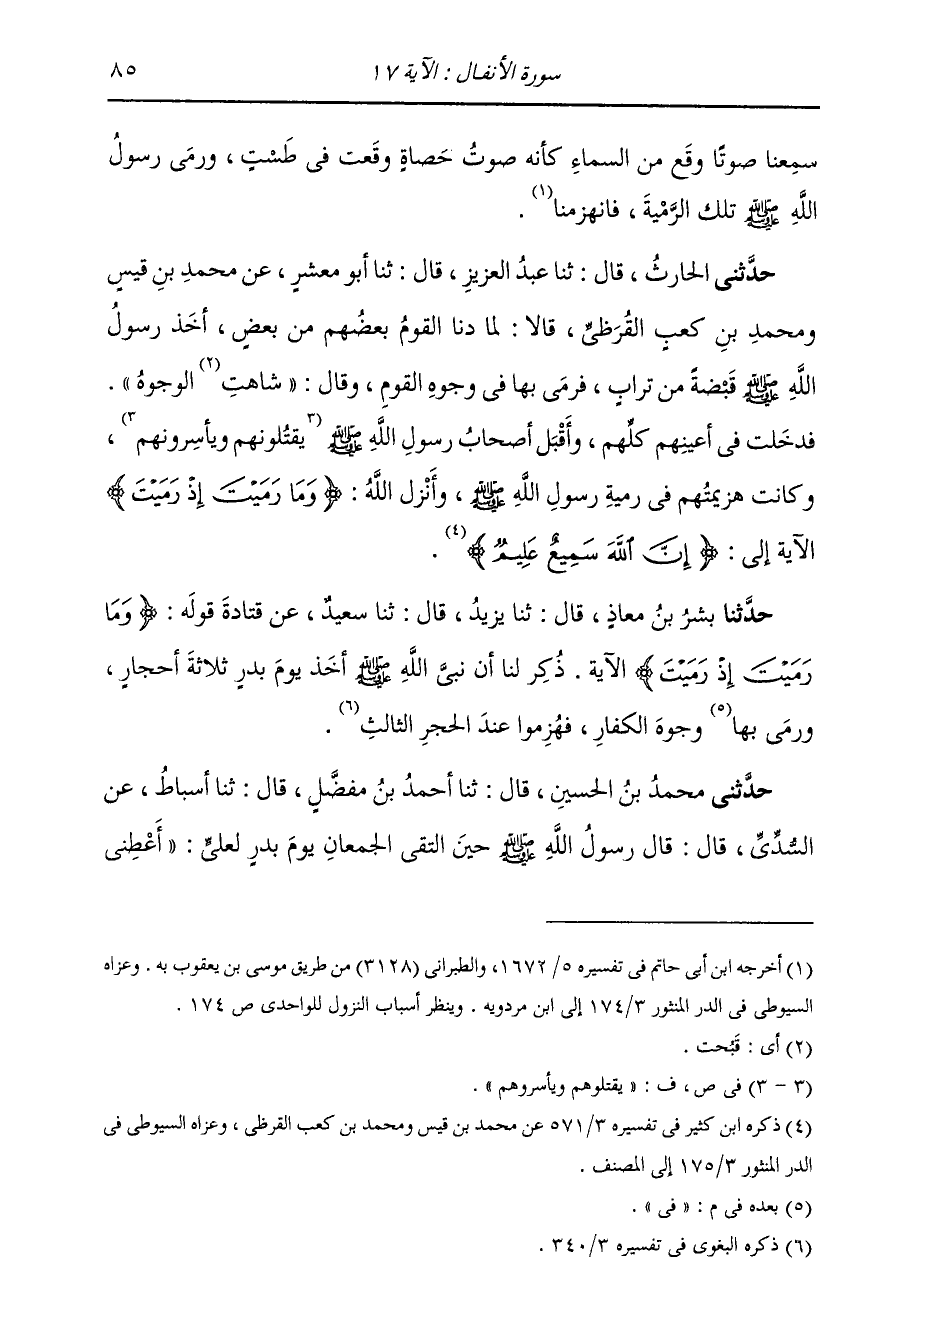 سورة الأنفال : الآية ١٧
٨٥
سمِعنا صوتًا وقَع من السماءِ كأنه صوتُ حَصاةٍ وقَعت فى طَسْتٍ ، ورمَى رسولُ
اللَّهِ ﷺ تلك الرَّمْيةَ ، فانهزمنا(١) .
حدَّثنى الحارثُ ، قال : ثنا عبدُ العزيزِ ، قال : ثنا أبو معشرٍ ، عن محمدِ بنِ قيسٍ
ومحمدِ بنِ كعبٍ القُرَظىِّ ، قالا : لما دنا القومُ بعضُهم من بعضٍ ، أخَذ رسولُ
اللَّهِ ﷺ قَبْضةً من ترابٍ ، فرمَى بها فى وجوهِ القومِ ، وقال : « شاهتِ(٢) الوجوهُ » .
فدخَلت فى أعينِهم كلِّهم ، وأَقْبَل أصحابُ رسولِ اللَّهِ ﷺ (٣ يقتُلونهم ويأسِرونهم٣) ،
وكانت هزيمتُهم فى رميةِ رسولِ اللَّهِ ﷺ ، وأَنْزل اللَّهُ : ﴿ وَمَا رَمَيْتَ إِذْ رَمَيْتَ ﴾
الآية إلى : ﴿ إِنَّ ٱللَّهَ سَمِيعٌ عَلِيمٌ ﴾(٤) .
حدَّثنا بشرُ بنُ معاذٍ ، قال : ثنا يزيدُ ، قال : ثنا سعيدٌ ، عن قتادةَ قولَه : ﴿ وَمَا
رَمَيْتَ إِذْ رَمَيْتَ ﴾ الآية . ذُكِر لنا أن نبىَّ اللَّهِ ﷺ أخَذ يومَ بدرٍ ثلاثةَ أحجارٍ ،
ورمَى بها(٥) وجوهَ الكفارِ ، فهُزِموا عندَ الحجرِ الثالثِ(٦) .
حدَّثنى محمدُ بنُ الحسينِ ، قال : ثنا أحمدُ بنُ مفضَّلٍ ، قال : ثنا أسباطُ ، عن
السُّدِّىِّ ، قال : قال رسولُ اللَّهِ ﷺ حينَ التقى الجمعانِ يومَ بدرٍ لعلىٍّ : « أَعْطِنى
(١) أخرجه ابن أبى حاتم فى تفسيره ٥/ ١٦٧٢، والطبرانى (٣١٢٨) من طريق موسى بن يعقوب به . وعزاه
السيوطى فى الدر المنثور ١٧٤/٣ إلى ابن مردويه . وينظر أسباب النزول للواحدى ص ١٧٤ .
(٢) أى : قَبُحت .
(٣ - ٣) فى ص ، ف : « يقتلوهم ويأسروهم » .
(٤) ذكره ابن كثير فى تفسيره ٥٧١/٣ عن محمد بن قيس ومحمد بن كعب القرظى ، وعزاه السيوطى فى
الدر المنثور ١٧٥/٣ إلى المصنف .
(٥) بعده فى م : « فى » .
(٦) ذكره البغوى فى تفسيره ٣٤٠/٣ .